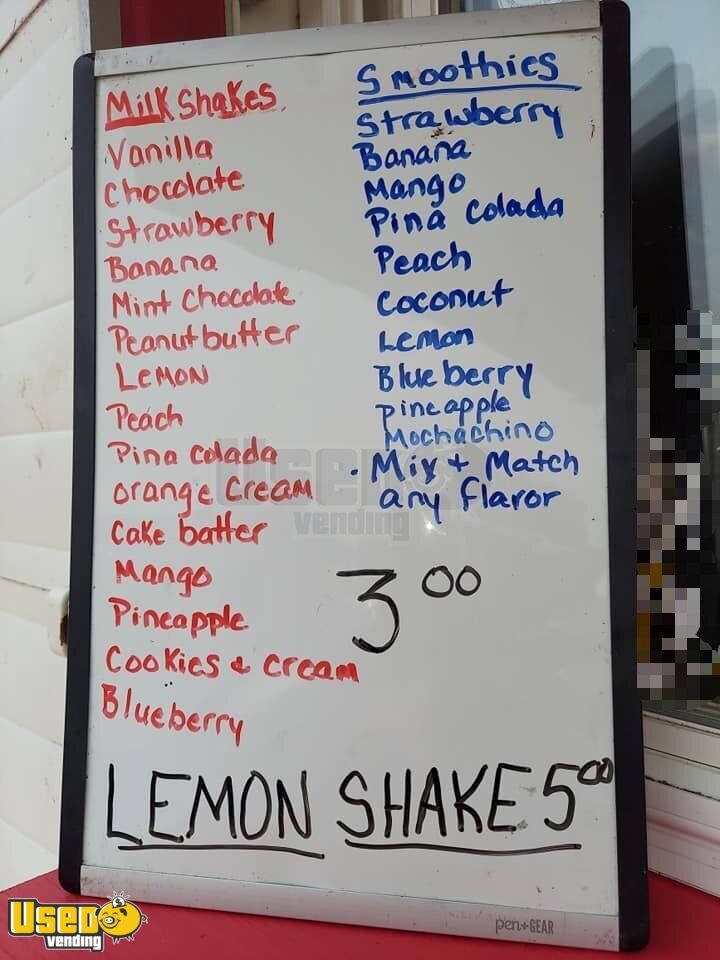 Milk Shakes
Vanilla
Chocolate
Strawberry
Banana
Mint Chocolate
Peanut butter
LEMON
Peach
Pina Colada
orange Cream
Cake batter
Mango
Pineapple
Cookies & cream
Blueberry
Smoothies
Strawberry
Banana
Mango
Pina Colada
Peach
Coconut
Lemon
Blueberry
Pineapple
Mochachino
• Mix + Match
any Flaror
3 00
LEMON SHAKE 5 00
USED vending
pen+GEAR
USED
vending